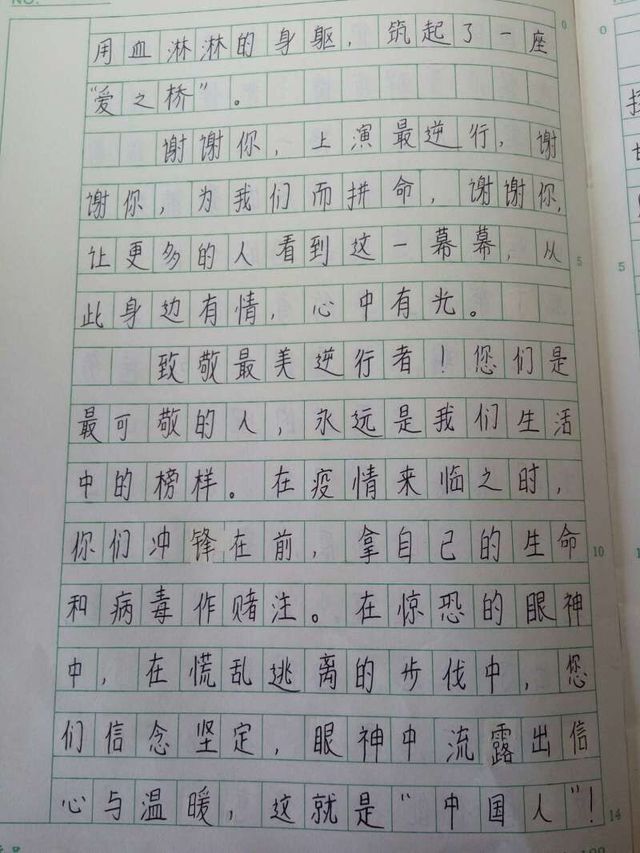 用血淋淋的身躯，筑起了一座
“爱之桥”。
谢谢你，上演最逆行，谢
谢你，为我们而拼命，谢谢你，
让更多的人看到这一幕幕，从
此身边有情，心中有光。
致敬最美逆行者！您们是
最可敬的人，永远是我们生活
中的榜样。在疫情来临之时，
你们冲锋在前，拿自己的生命
和病毒作赌注。在惊恐的眼神
中，在慌乱逃离的步伐中，您
们信念坚定，眼神中流露出信
心与温暖，这就是“中国人”！
0
5
10
14
0
5